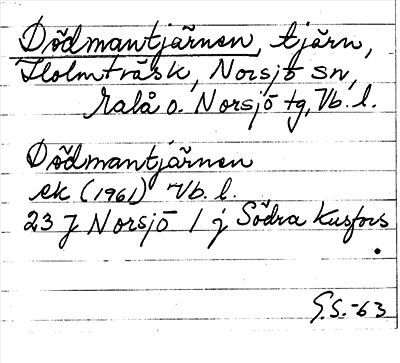 Dödmantjärnen, tjärn,
Holmträsk, Norsjö sn,
Malå o. Norsjö tg, Vb. l.
Dödmantjärnen
ek (1961) Vb. l.
23 J Norsjö / j Södra Kusfors
G.S.-63